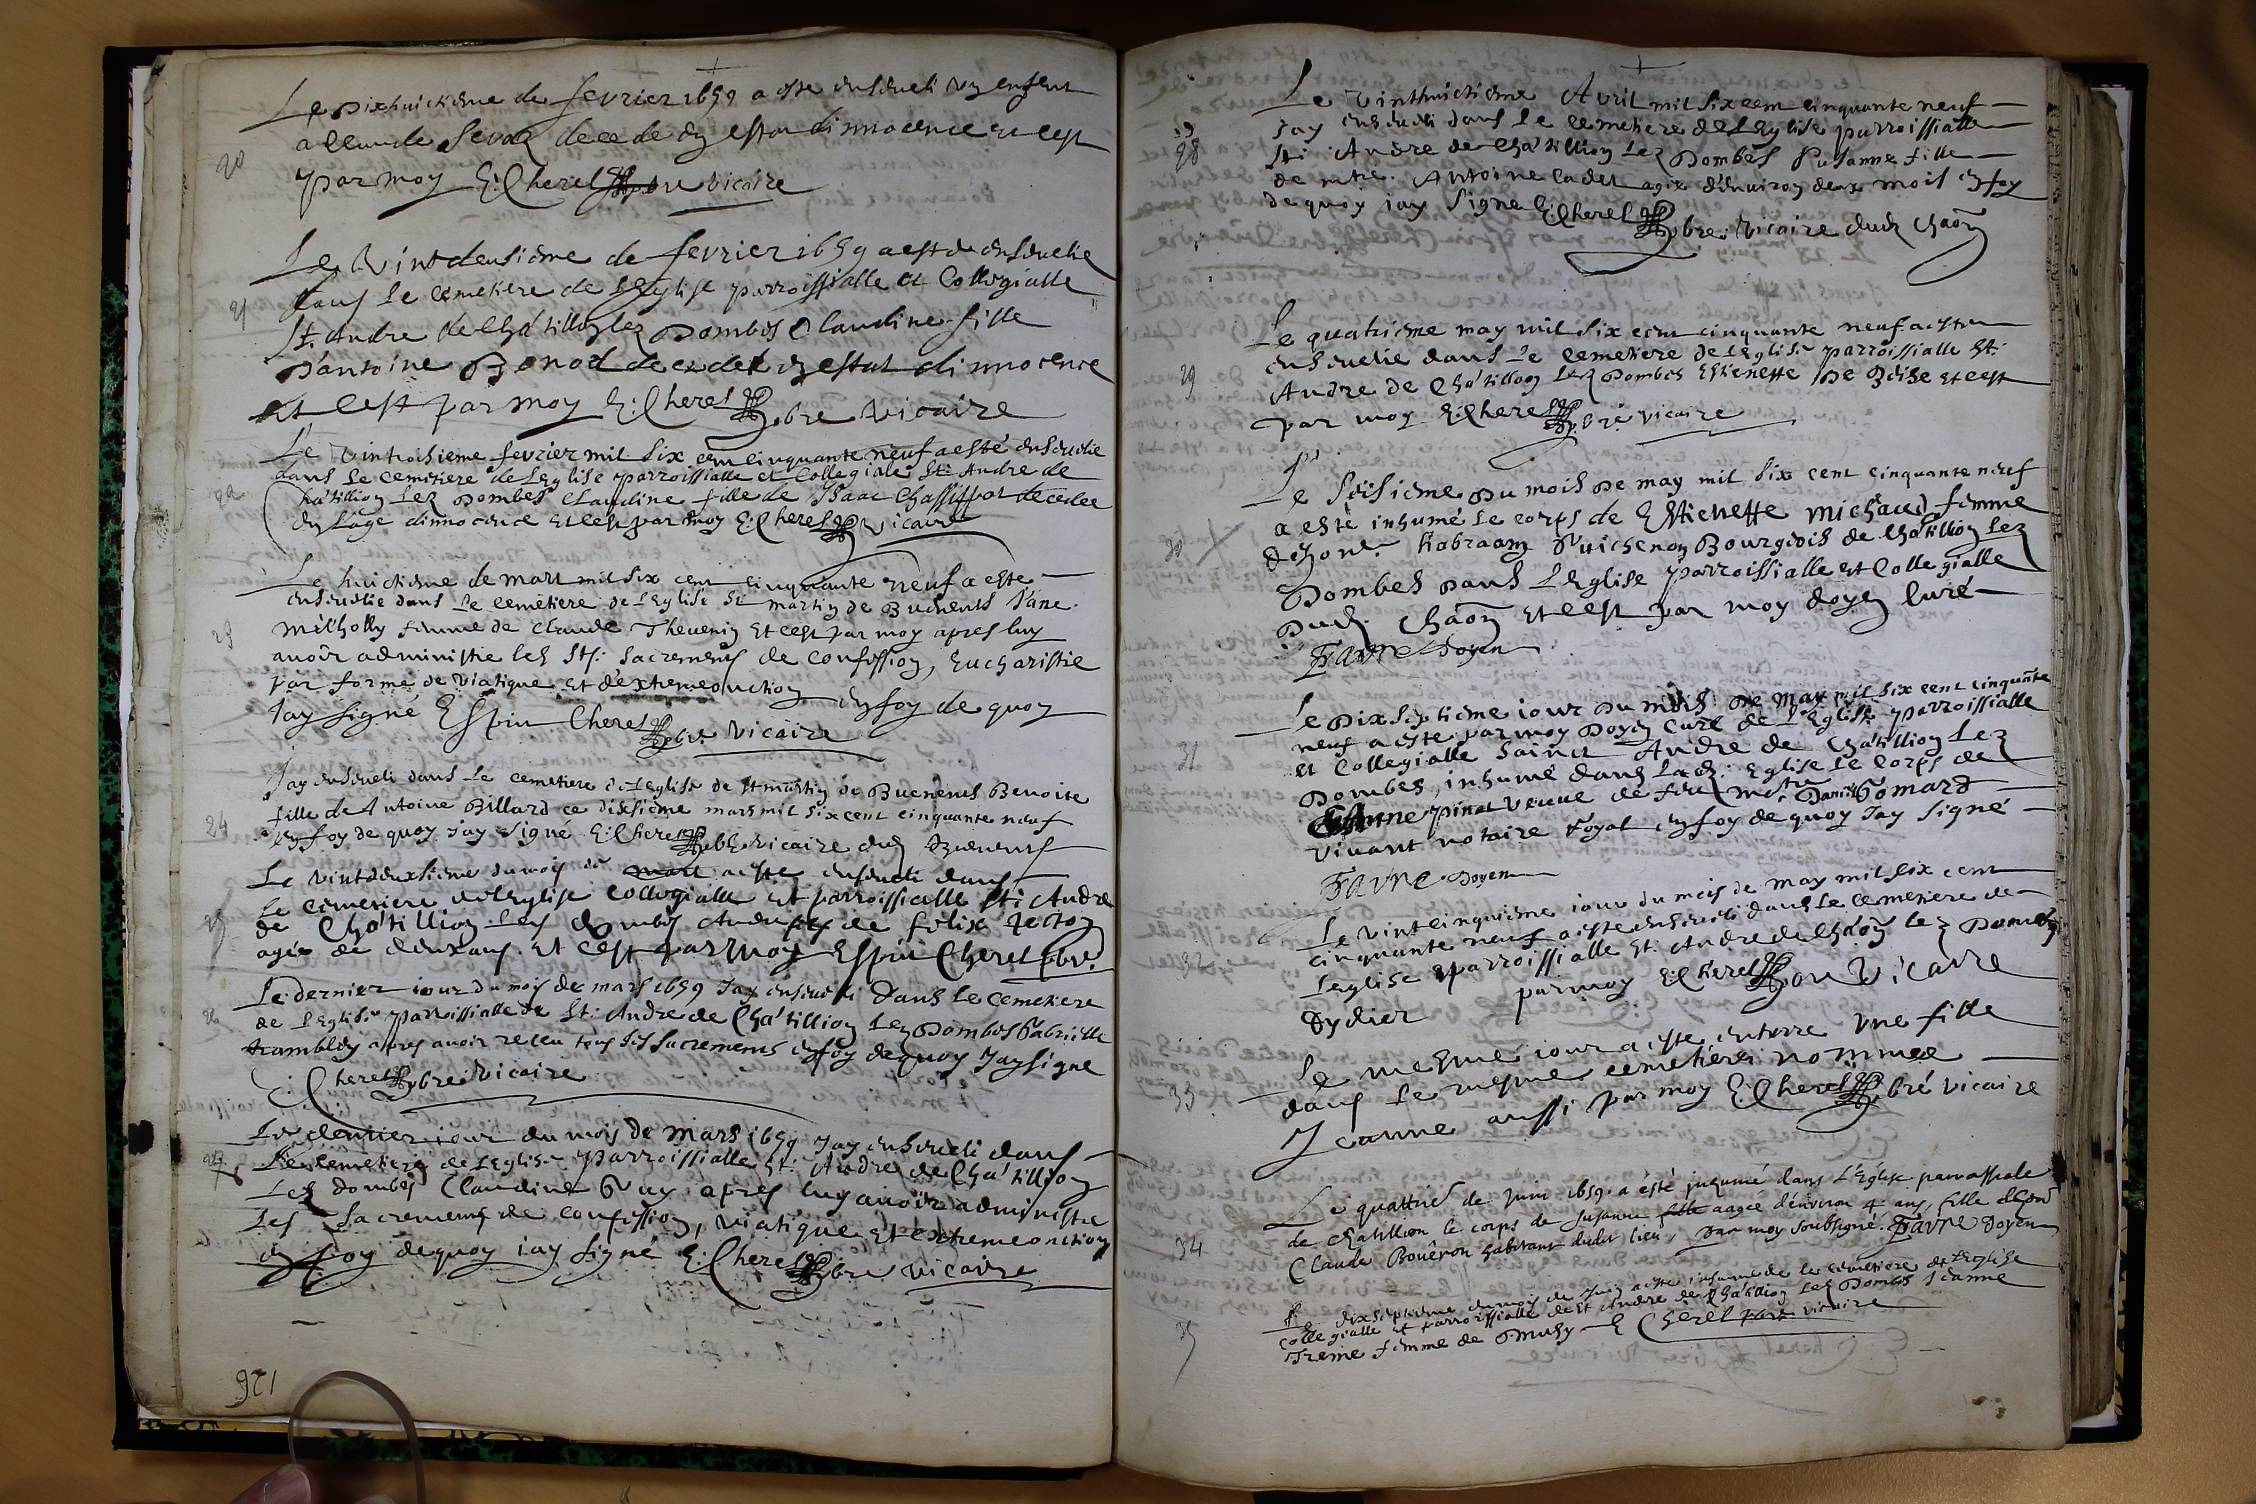 Le Dixhuictiesme de fevrier 1659 a este enseveli un enfant
20
decede en estat dinnocence et cest
par moy E: Cherel pbre vicaire
Le Vintdeusieme de fevrier 1659 a este enseuelie
dans le cemetiere de LEglise parroissialle et Collegialle
21
St. Andre de Chatillon lez Dombes Claudine fille
D'antoine Bonod decedee en estat dinnocence
et cest par moy E: Cherel pbre vicaire
Le vintroisieme fevrier mil six cem cinquante neuf a esté enseuelie
dans le cemetiere de LEglise parroissialle et Collegiale St: Andre de
22
Chatillion Lez Dombes Claudine fille de Isaac decedee
en l'age dinnocence et cest par moy E: Cherel vicaire
Le huictieme de mars mil six cent cinquante neuf a este
enseuelie dans le cemetiere de LEglise St martin de Buenens
23
femme de Claude Thevenin et cest par moy apres luy
auoir administre les Sts: Sacremens de confession, Eucharistie
par forme de viatique et dextremeonction en foy de quoy
Jay signe Espri Cherel pbre vicaire
Jay enseueli dans le cemetiere de LEglise de St martin de Buenens Benoite
fille de Antoine Billard ce dixsieme mars mil six cent cinquante neuf
24
en foy de quoy Jay signe E: Cherel pbre vicaire dud Buenens
Le vintdeuxsieme du mois de mars a este enseueli dans
le cemetiere de LEglise collegialle et parroissialle St: Andre
25
de Chatillion Les Dombes Andre fils de felix
agee de deux ans et cest par moy Espri Cherel pbre
Le dernier iour du moys de mars 1659 Jay enseueli dans le cemetiere
26
de LEglise parroissialle de St: Andre de Chatillion Lez Dombes Gabrielle
Trambley apres auoir receu tous ses sacremens en foy de quoy Jay signe
E: Cherel pbre vicaire
Le dernier iour du mois de mars 1659 Jay enseueli dans
27
le cemetiere de LEglise parroissialle St: Andre de Chatillion
Lez dombes Claudine Guy apres luy auoir administre
Les Sacremens de confession, viatique et extremeonction
en foy de quoy iay signé E: Cherel pbre vicaire
126
Le Vinthuictieme Avril mil six cem cinquante neuf
Jay enseueli dans le cemetiere de LEglise parroissialle
28
St: Andre de Chatillion Lez Dombes Susanne fille
de mre. Antoine Cadet agee d'enuiron deux mois en foy
de quoy iay signe E: Cherel pbre vicaire dud Chaon
Le quatrieme may mil six cem cinquante neuf a este
enseuelie dans le cemetiere de LEglise parroissialle St:
29
Andre de Chatillon Lez Dombes Estienette et cest
par moy E: Cherel pbre vicaire
Le seisieme du mois de may mil six cent cinquante neuf
a esté inhumé le corps de Estienette Michaud femme
30
de hon. habraam Guichenon Bourgeois de Chatillion Lez
Dombes dans LEglise parroissialle et Collegialle
dud. Chaon et cest par moy doyen Curé
Favre Doyen
Le Dixseptieme iour du mois de may mil six cent cinquante
neuf a este par moy Doyen Curé de l'Eglise parroissialle
31
et Collegialle Sainct Andre de Chatillion Lez
Dombes, inhumé dans lad: Eglise le corps de
Pinet veuve de feu Daniel Gomard
vivant notaire royal en foy de quoy Jay signé
Favre Doyen
Le vintcinquieme iour du mois de may mil six cent
cinquante neuf a este enseueli dans le cemetiere de
32
Leglise parroissialle St: Andre de Chaon lez Dombes
Dydier par moy E: Cherel pbre Vicaire
Le mesme iour a este enterre une fille
33
dans le mesme cemetiere nommee
Jeanne aussi par moy E: Cherel pbre vicaire
Le quattries de Juin 1659. a été inhumé dans L'Eglise parrossiale
de Chatillion le corps de Susanne fille aagee d'environ 4 ans, fille
34
Claude Bouêron habitant dudit lieu, par moy soubsigné. Favre Doyen
Le dixseptieme du mois de Juin a este inhumee le cemetiere de LEglise
collegialle et parroissialle de St Andre de Chatillion Lez Dombes Jeanne
35
femme de E Cherel vicaire